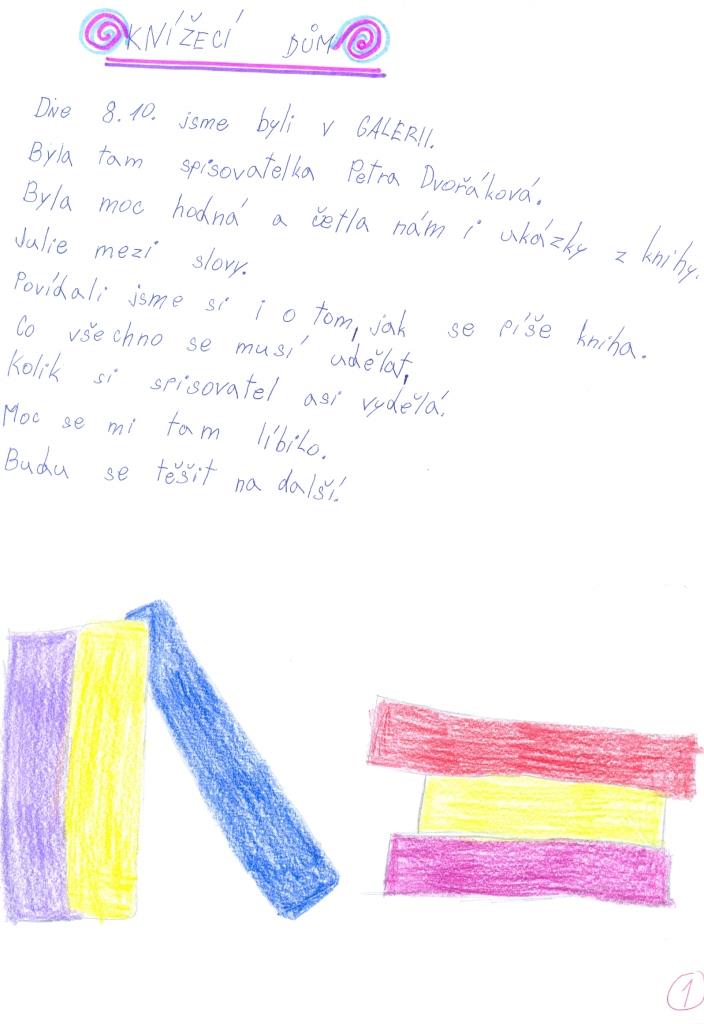 KNÍŽECÍ DŮM
Dne 8.10. jsme byli v GALERII.
Byla tam spisovatelka Petra Dvořáková.
Byla moc hodná a četla nám i ukázky z knihy.
Julie mezi slovy.
Povídali jsme si i o tom, jak se píše kniha.
Co všechno se musí udělat,
Kolik si spisovatel asi vydělá.
Moc se mi tam líbilo.
Budu se těšit na další!
1